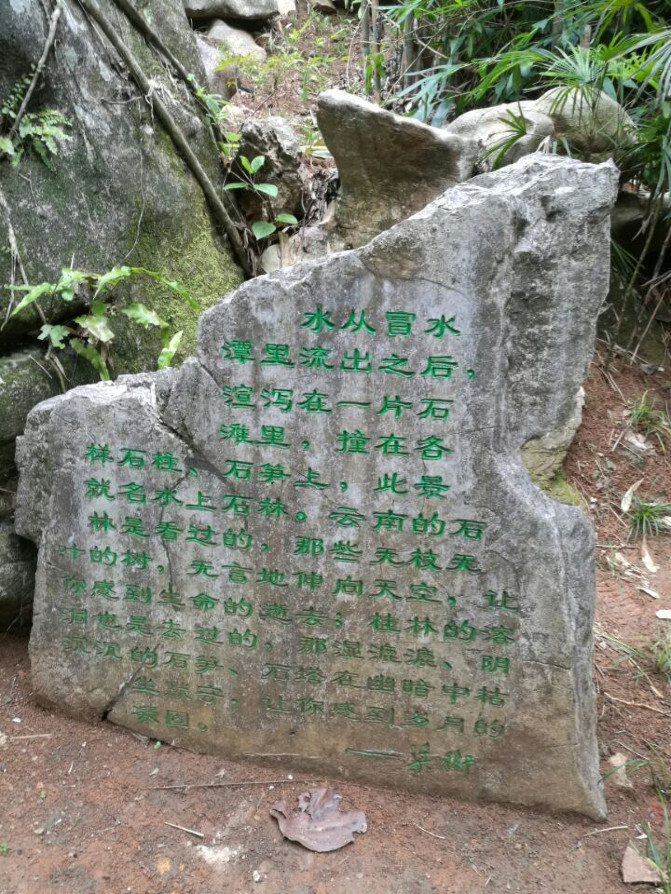 水从冒水
潭里流出之后，
渲泻在一片石
滩里，撞在各
样石柱、石笋上，此景
就名水上石林。云南的石
林是看过的，那些无枝无
叶的树，无言地伸向天空，让
你感到生命的逝去；桂林的溶
洞也是去过的，那湿漉漉、阴
沉沉的石笋、石塔在幽暗中枯
坐
，让你感到岁月的
凝固。